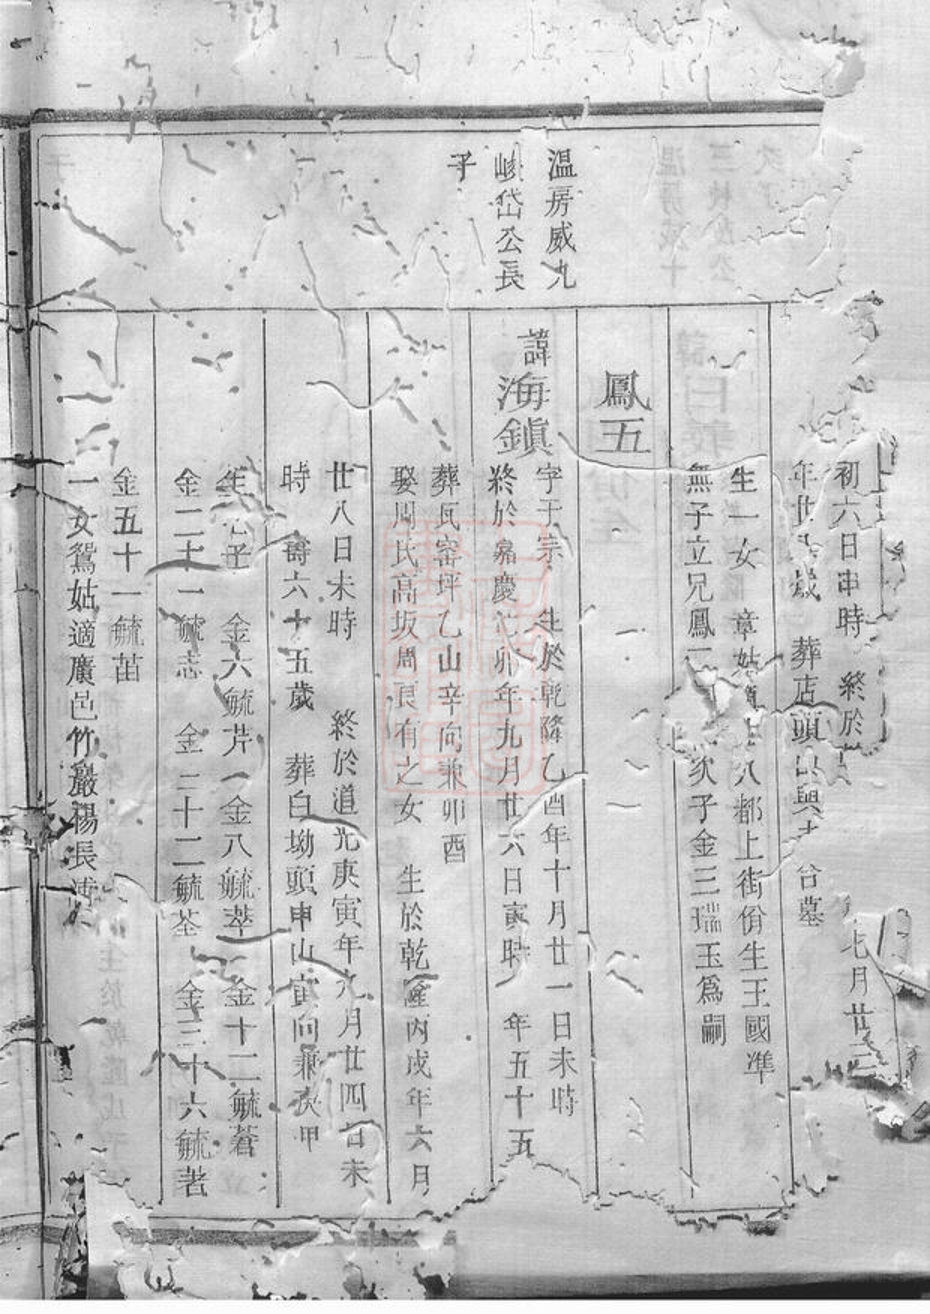 初六日申時 終於 七月廿三
年廿 歲 葬店頭 與 合墓
生一女 章姑 八都上街佾生王國準
無子立兄鳳 次子金三瑞玉爲嗣
鳳五
溫房威九
峻岱公長
子
諱海鎮
字于宗 生於乾隆乙酉年十月廿一日未時
終於嘉慶己卯年九月廿六日寅時 年五十五
葬瓦窑坪乙山辛向兼卯酉
娶周氏高坂周良有之女 生於乾隆丙戌年六月
廿八日未時 終於道光庚寅年九月廿四日未
時 壽六十五歲 葬白坳頭申山寅向兼庚甲
生 子 金六毓芹 金八毓萃 金十二毓蒼
金二十一毓志 金二十二毓荃 金三十六毓著
金五十一毓苗
一女鴛姑適廣邑竹巖楊長